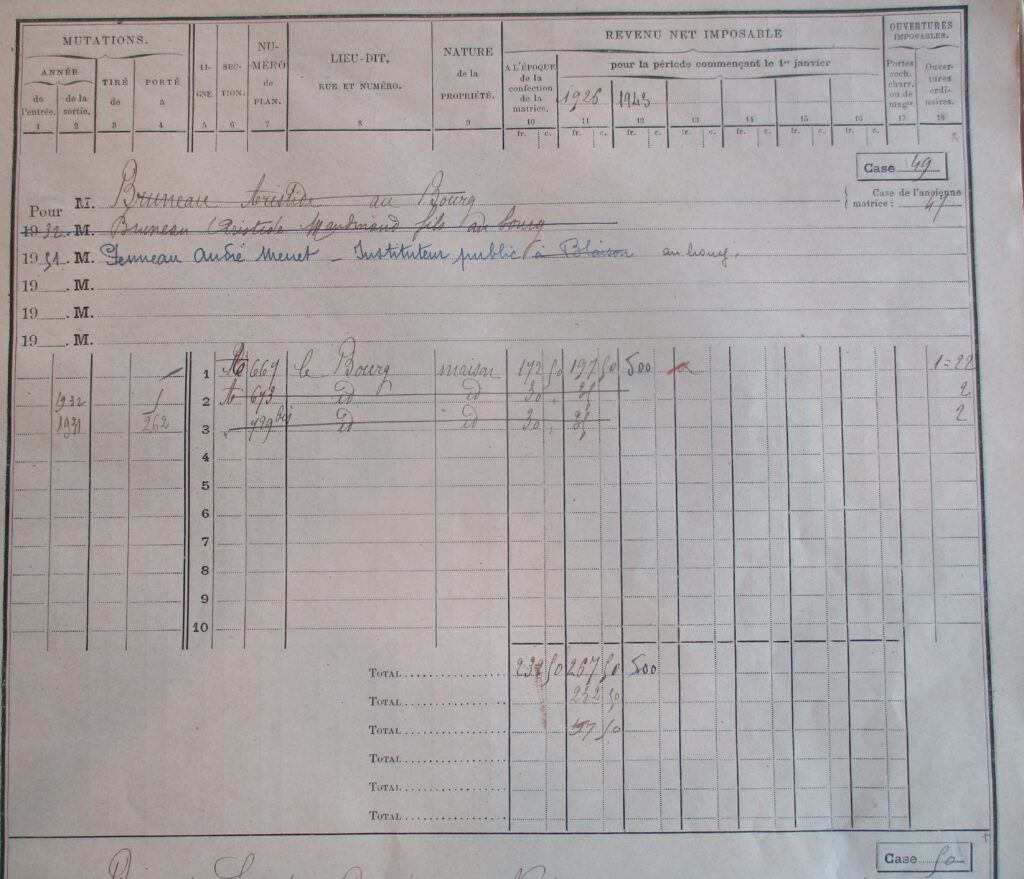 MUTATIONS.
ANNÉE
de l'entrée.
de la sortie.
TIRÉ de
PORTÉ à
LIGNE.
SECTION.
NUMÉRO de PLAN.
LIEU-DIT, RUE ET NUMÉRO.
NATURE de la PROPRIÉTÉ.
REVENU NET IMPOSABLE
A L'ÉPOQUE de la confection de la matrice.
pour la période commençant le 1er janvier
1926 1943
OUVERTURES IMPOSABLES.
Portes coch. charr. ou de magin.
Ouvertures ordinaires.
1 2 3 4 5 6 7 8 9 10 11 12 13 14 15 16 17 18
fr. c. fr. c. fr. c. fr. c. fr. c. fr. c. fr. c.
Case 49
Case de l'ancienne matrice : 47
Pour M. Bruneau Aristide au Bourg
1932. M. Bruneau Aristide fils au bourg
1951. M. André Menet - Instituteur public à Blaison au bourg.
19 . M.
19 . M.
19 . M.
1 667 le Bourg maison 172 50 197 50 500 1=22
1932 1 2 673 id id 30 . 35 2
1931 262 3 729 bis id id 30 . 35 2
4
5
6
7
8
9
10
TOTAL 232 50 267 50 500
TOTAL 232 50
TOTAL 197 50
TOTAL
TOTAL
TOTAL
Case 50